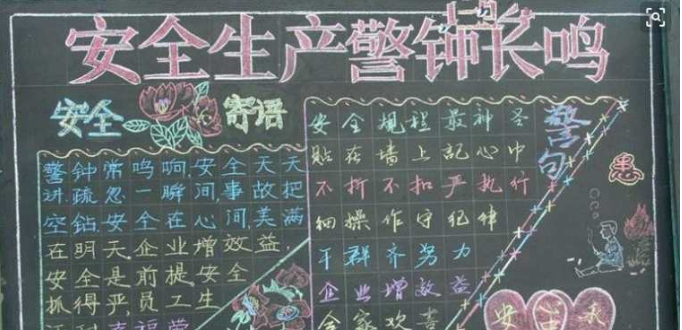 安全生产警钟长鸣
安全
寄语
警钟常鸣响,安全天天
讲.疏忽一瞬间,事故把
空钻.安全在心间,美满
在明天.企业增效益.
安全是前提.安全
抓得严,员工生
幸福
安全规程最神圣
贴在墙上記心中
不折不扣严执行
细操作守纪律
干群齐努力
企业增效益
合家欢喜
警句
愚
安